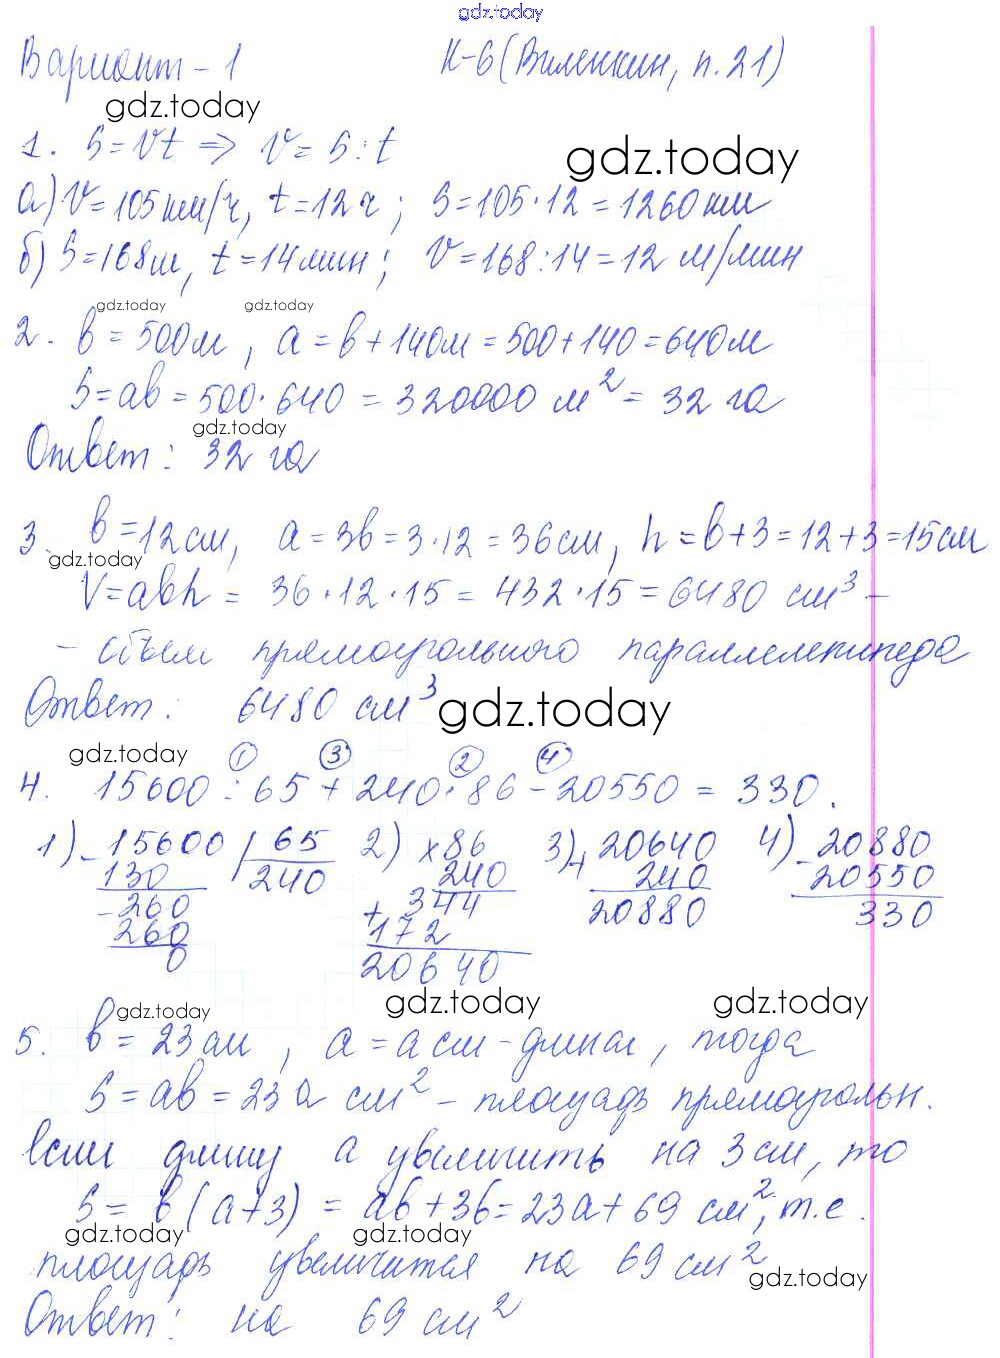 gdz.today
Вариант - 1 К-6 (Виленкин, п. 21)
gdz.today
1. S = Vt ⇒ V = S : t
gdz.today
а) V = 105 км/ч, t = 12 ч ; S = 105 · 12 = 1260 км
б) S = 168 м, t = 14 мин ; V = 168 : 14 = 12 м/мин
gdz.today gdz.today
2. b = 500 м , a = b + 140 м = 500 + 140 = 640 м
S = ab = 500 · 640 = 320000 м² = 32 га
gdz.today
Ответ : 32 га
3. b = 12 см, a = 3b = 3 · 12 = 36 см, h = b + 3 = 12 + 3 = 15 см
gdz.today
V = abh = 36 · 12 · 15 = 432 · 15 = 6480 см³ -
- объем прямоугольного параллелепипеда
Ответ : 6480 см³
gdz.today
gdz.today
① ③ ② ④
4. 15600 : 65 + 240 · 86 - 20550 = 330 .
1) - 15600 | 65 2) × 86 3) + 20640 4) - 20880
130 240 240 240 20550
- 260 + 344 20880 330
260 172
0 20640
gdz.today gdz.today gdz.today
5. b = 23 см , a = a см - длина , тогда
S = ab = 23a см² - площадь прямоугольн.
Если длину a увеличить на 3 см, то
S = b (a+3) = ab + 3b = 23a + 69 см², т.е.
gdz.today gdz.today
площадь увеличится на 69 см²
gdz.today
Ответ : на 69 см²